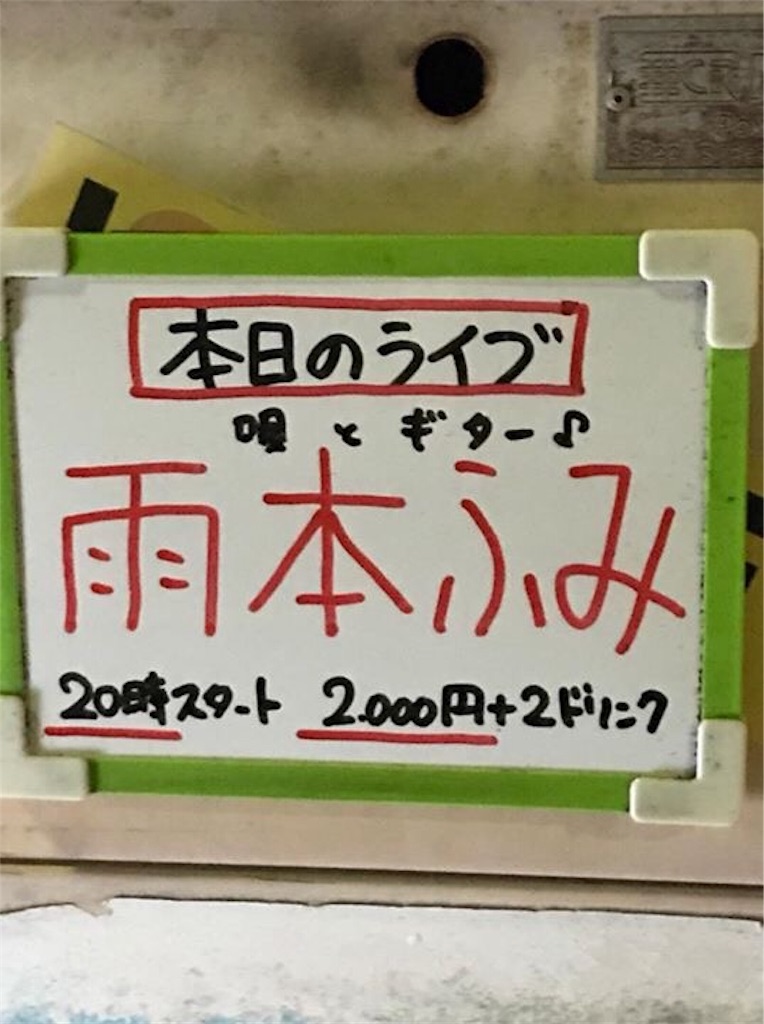 本日のライブ
唄とギター♪
雨本ふみ
20時スタート 2.000円+2ドリンク